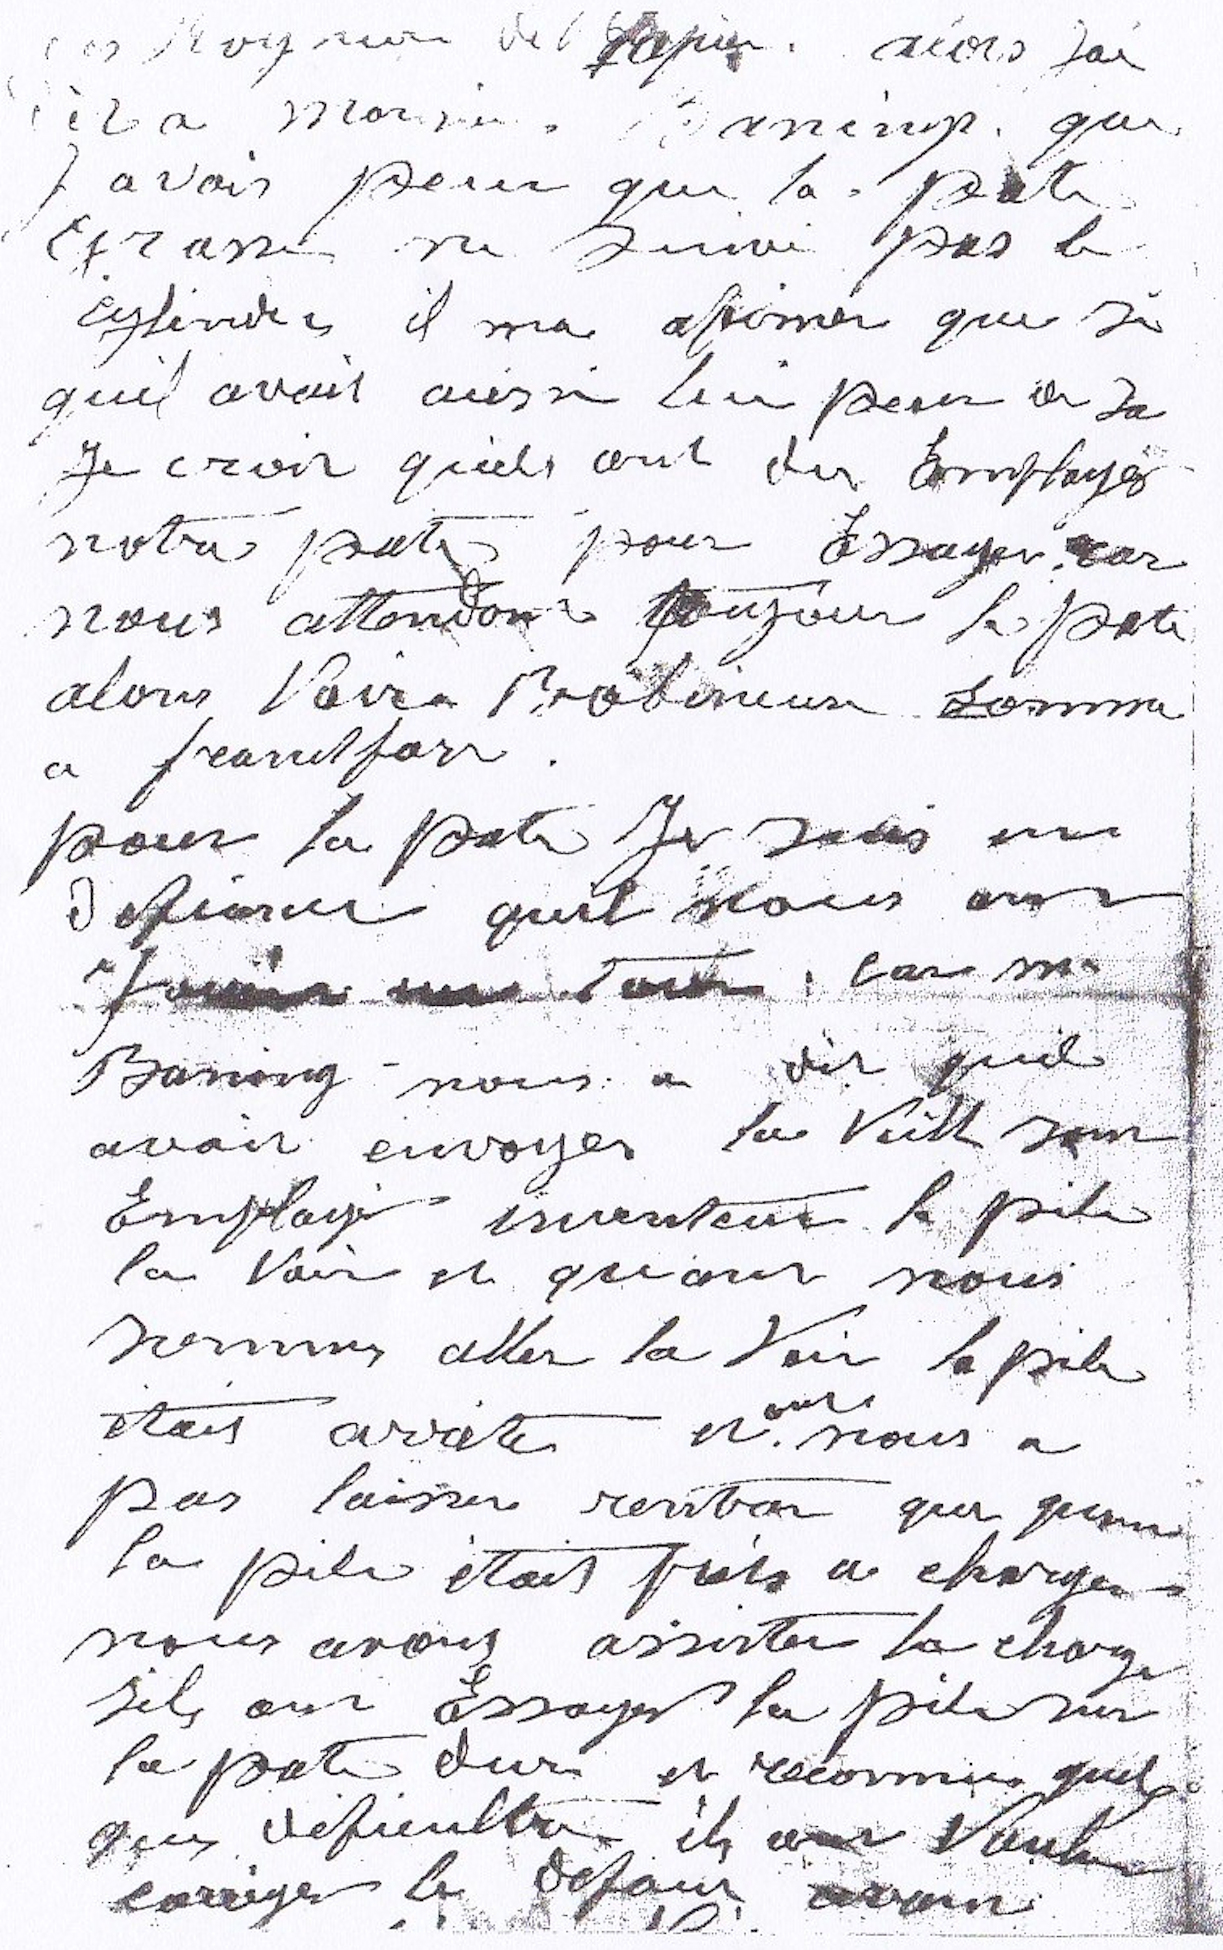 Rogneure de papier. alors jai
dit a Monsieur Banning. que
J avais peur que la pate
Ecrasse ne suive pas le
cylindres il ma afirmer que si
quil avait aussi lui peur de sa
Je croir quils ont du Employés
notre pate pour Essayer car
nous attendons toujours la pate
alors Voir Robineux somme
a francfort.
pour la pate Je suis en
Defiance quil nous ont
Jouer un tour. car mr
Baning nous a dit quil
avait envoyer la Veille son
Employé inventeur la pile
la Voir et quant nous
sommes aller la Voir la pile
était arrêter et on nous a
pas laisser rentrer que quan
la pile était prêts a charger
nous avons assister la charge
sils ont Essayer la pile sur
la pate dure et reconnu quel
ques dificulter ils ont Voulu
corriger le defaut avan